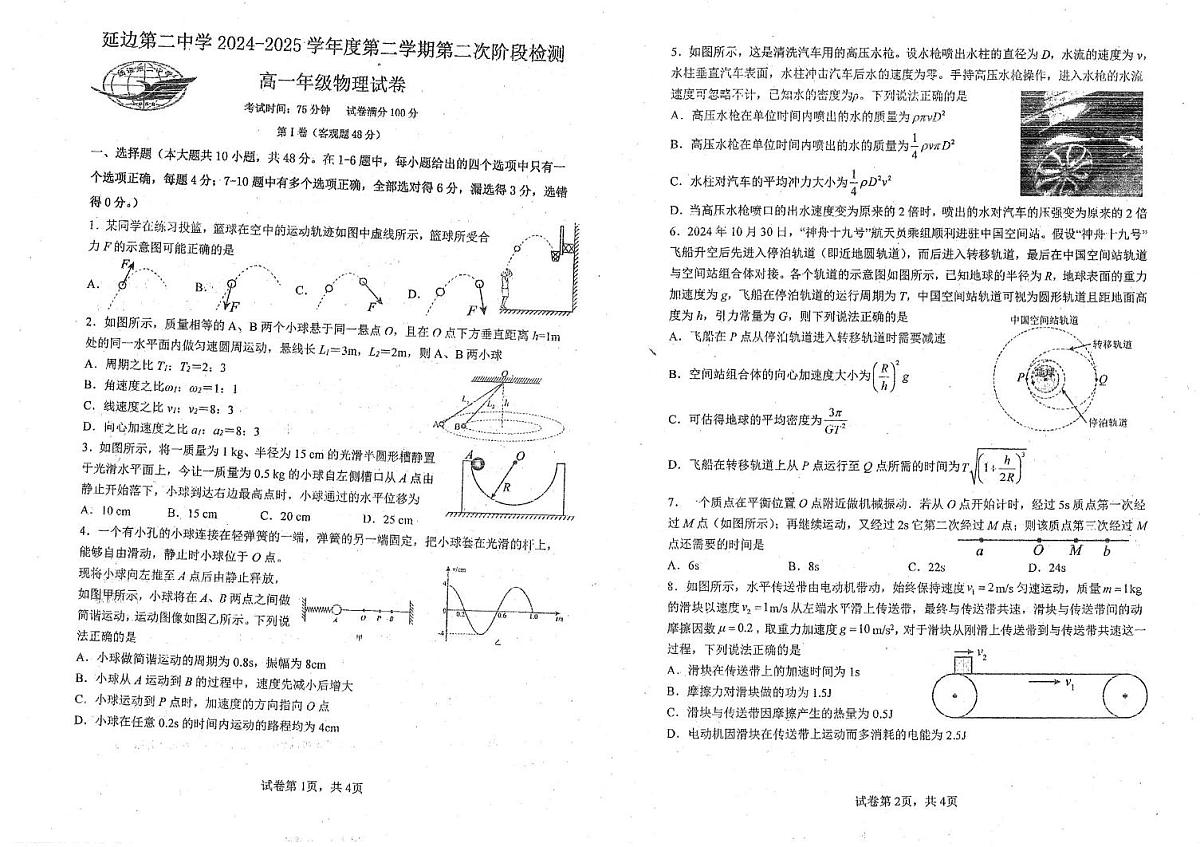 延边第二中学 2024-2025 学年度第二学期第二次阶段检测
高一年级物理试卷
考试时间：75 分钟 试卷满分 100 分
第 I 卷（客观题 48 分）
一、选择题（本大题共 10 小题，共 48 分。在 1-6 题中，每小题给出的四个选项中只有一
个选项正确，每题 4 分；7-10 题中有多个选项正确，全部选对得 6 分，漏选得 3 分，选错
得 0 分。）
1．某同学在练习投篮，篮球在空中的运动轨迹如图中虚线所示，篮球所受合
力 F 的示意图可能正确的是
A．
F
B．
F
C．
F
D．
F
2．如图所示，质量相等的 A、B 两个小球悬于同一悬点 O，且在 O 点下方垂直距离 h=1m
处的同一水平面内做匀速圆周运动，悬线长 L₁=3m，L₂=2m，则 A、B 两小球
A．周期之比 T₁：T₂=2：3
B．角速度之比ω₁：ω₂=1：1
C．线速度之比 v₁：v₂=8：3
D．向心加速度之比 a₁：a₂=8：3
O
L₁
L₂
h
A
B
3．如图所示，将一质量为 1 kg、半径为 15 cm 的光滑半圆形槽静置
于光滑水平面上，今让一质量为 0.5 kg 的小球自左侧槽口从 A 点由
静止开始落下，小球到达右边最高点时，小球通过的水平位移为
A．10 cm B．15 cm C．20 cm D．25 cm
A
O
R
4．一个有小孔的小球连接在轻弹簧的一端，弹簧的另一端固定，把小球套在光滑的杆上，
能够自由滑动，静止时小球位于 O 点。
现将小球向左推至 A 点后由静止释放，
如图甲所示，小球将在 A、B 两点之间做
简谐运动，运动图像如图乙所示。下列说
法正确的是
A O P B
甲
x/cm
4
0 0.2 0.6 1.0 t/s
-4
乙
A．小球做简谐运动的周期为 0.8s，振幅为 8cm
B．小球从 A 运动到 B 的过程中，速度先减小后增大
C．小球运动到 P 点时，加速度的方向指向 O 点
D．小球在任意 0.2s 的时间内运动的路程均为 4cm
试卷第 1页，共 4页
5．如图所示，这是清洗汽车用的高压水枪。设水枪喷出水柱的直径为 D，水流的速度为 v，
水柱垂直汽车表面，水柱冲击汽车后水的速度为零。手持高压水枪操作，进入水枪的水流
速度可忽略不计，已知水的密度为ρ。下列说法正确的是
A．高压水枪在单位时间内喷出的水的质量为 ρπvD²
B．高压水枪在单位时间内喷出的水的质量为 1/4 ρvπD²
C．水柱对汽车的平均冲力大小为 1/4 ρD²v²
D．当高压水枪喷口的出水速度变为原来的 2 倍时，喷出的水对汽车的压强变为原来的 2 倍
6．2024 年 10 月 30 日，“神舟十九号”航天员乘组顺利进驻中国空间站。假设“神舟十九号”
飞船升空后先进入停泊轨道（即近地圆轨道），而后进入转移轨道，最后在中国空间站轨道
与空间站组合体对接。各个轨道的示意图如图所示，已知地球的半径为 R，地球表面的重力
加速度为 g，飞船在停泊轨道的运行周期为 T，中国空间站轨道可视为圆形轨道且距地面高
度为 h，引力常量为 G，则下列说法正确的是
A．飞船在 P 点从停泊轨道进入转移轨道时需要减速
B．空间站组合体的向心加速度大小为 (R/h)² g
C．可估得地球的平均密度为 3π/GT²
D．飞船在转移轨道上从 P 点运行至 Q 点所需的时间为 T√(1+h/2R)³
中国空间站轨道
转移轨道
地球
P
Q
停泊轨道
7． 个质点在平衡位置 O 点附近做机械振动．若从 O 点开始计时，经过 5s 质点第一次经
过 M 点（如图所示）；再继续运动，又经过 2s 它第二次经过 M 点；则该质点第三次经过 M
点还需要的时间是
a O M b
A．6s B．8s C．22s D．24s
8．如图所示，水平传送带由电动机带动，始终保持速度 v₁ = 2 m/s 匀速运动，质量 m = 1 kg
的滑块以速度 v₂ = 1 m/s 从左端水平滑上传送带，最终与传送带共速，滑块与传送带间的动
摩擦因数 μ = 0.2，取重力加速度 g = 10 m/s²，对于滑块从刚滑上传送带到与传送带共速这一
过程，下列说法正确的是
A．滑块在传送带上的加速时间为 1s
B．摩擦力对滑块做的功为 1.5J
C．滑块与传送带因摩擦产生的热量为 0.5J
D．电动机因滑块在传送带上运动而多消耗的电能为 2.5J
v₂
v₁
试卷第 2页，共 4页